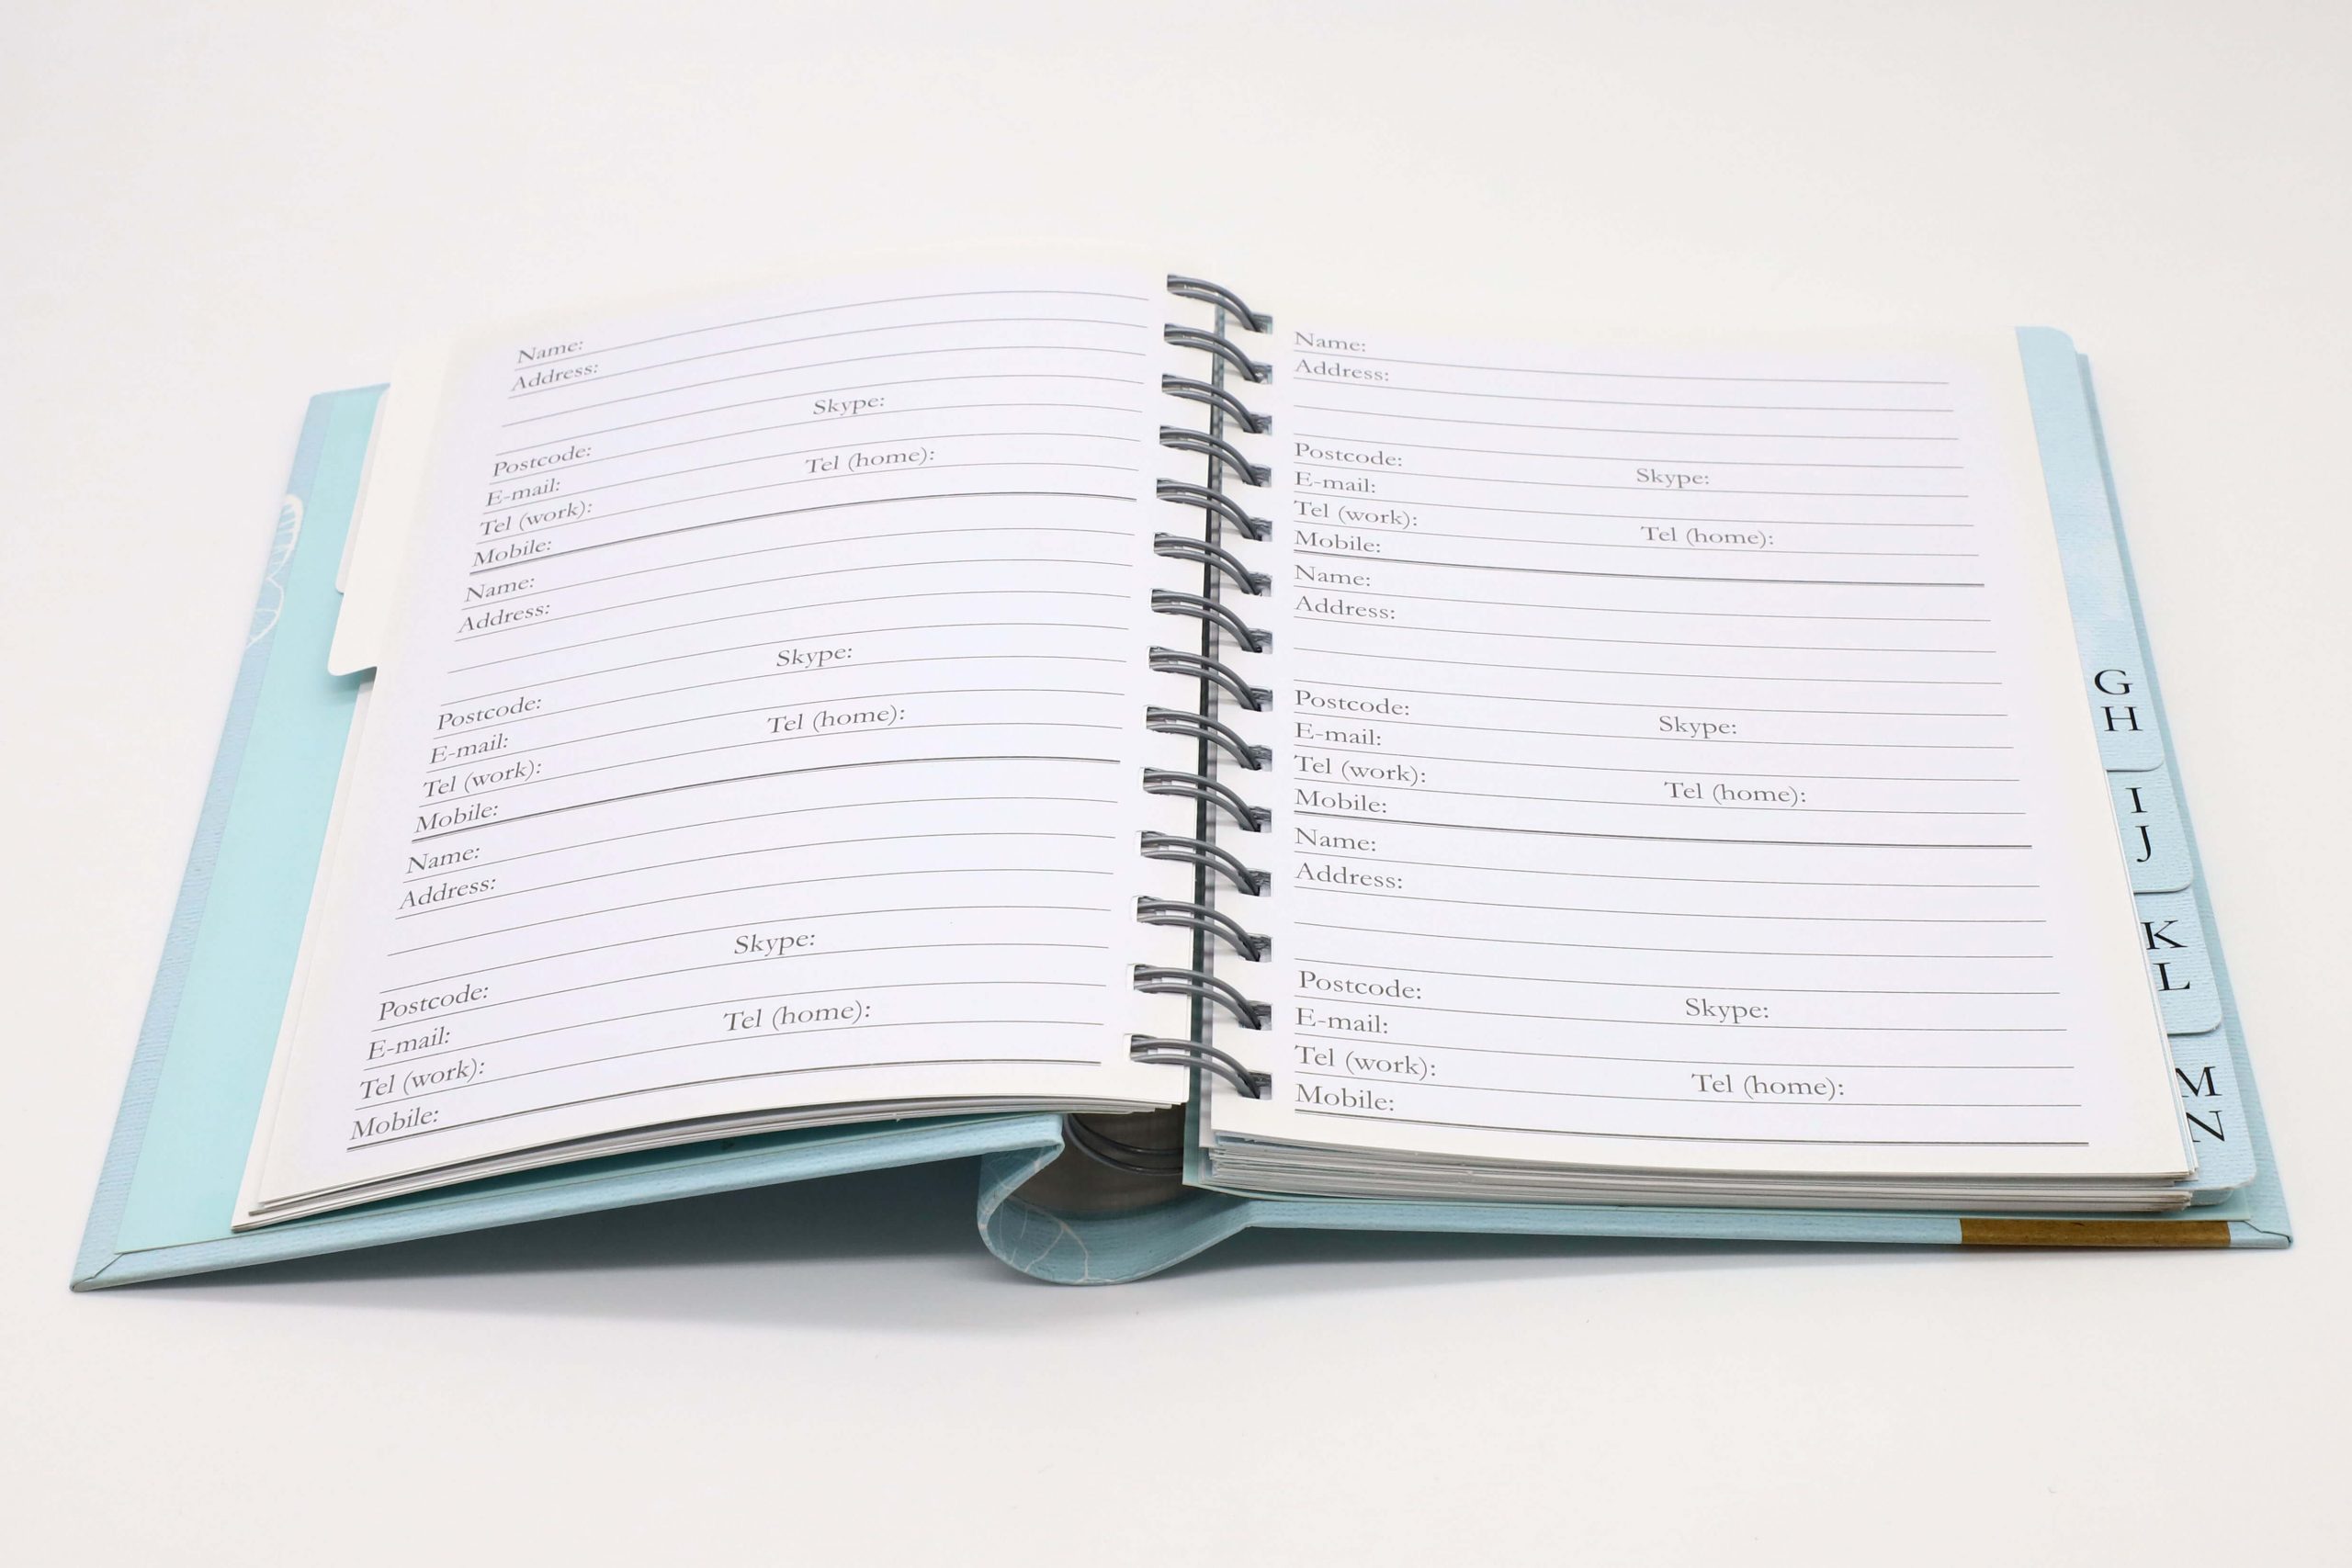 Name:
Address:
Skype:
Postcode:
E-mail:
Tel (home):
Tel (work):
Mobile:
Name:
Address:
Skype:
Postcode:
E-mail:
Tel (home):
Tel (work):
Mobile:
Name:
Address:
Skype:
Postcode:
E-mail:
Tel (home):
Tel (work):
Mobile:
Name:
Address:
Postcode:
E-mail: Skype:
Tel (work):
Mobile: Tel (home):
Name:
Address:
Postcode:
E-mail: Skype:
Tel (work):
Mobile: Tel (home):
Name:
Address:
Postcode:
E-mail: Skype:
Tel (work):
Mobile: Tel (home):
G
H
I
J
K
L
M
N